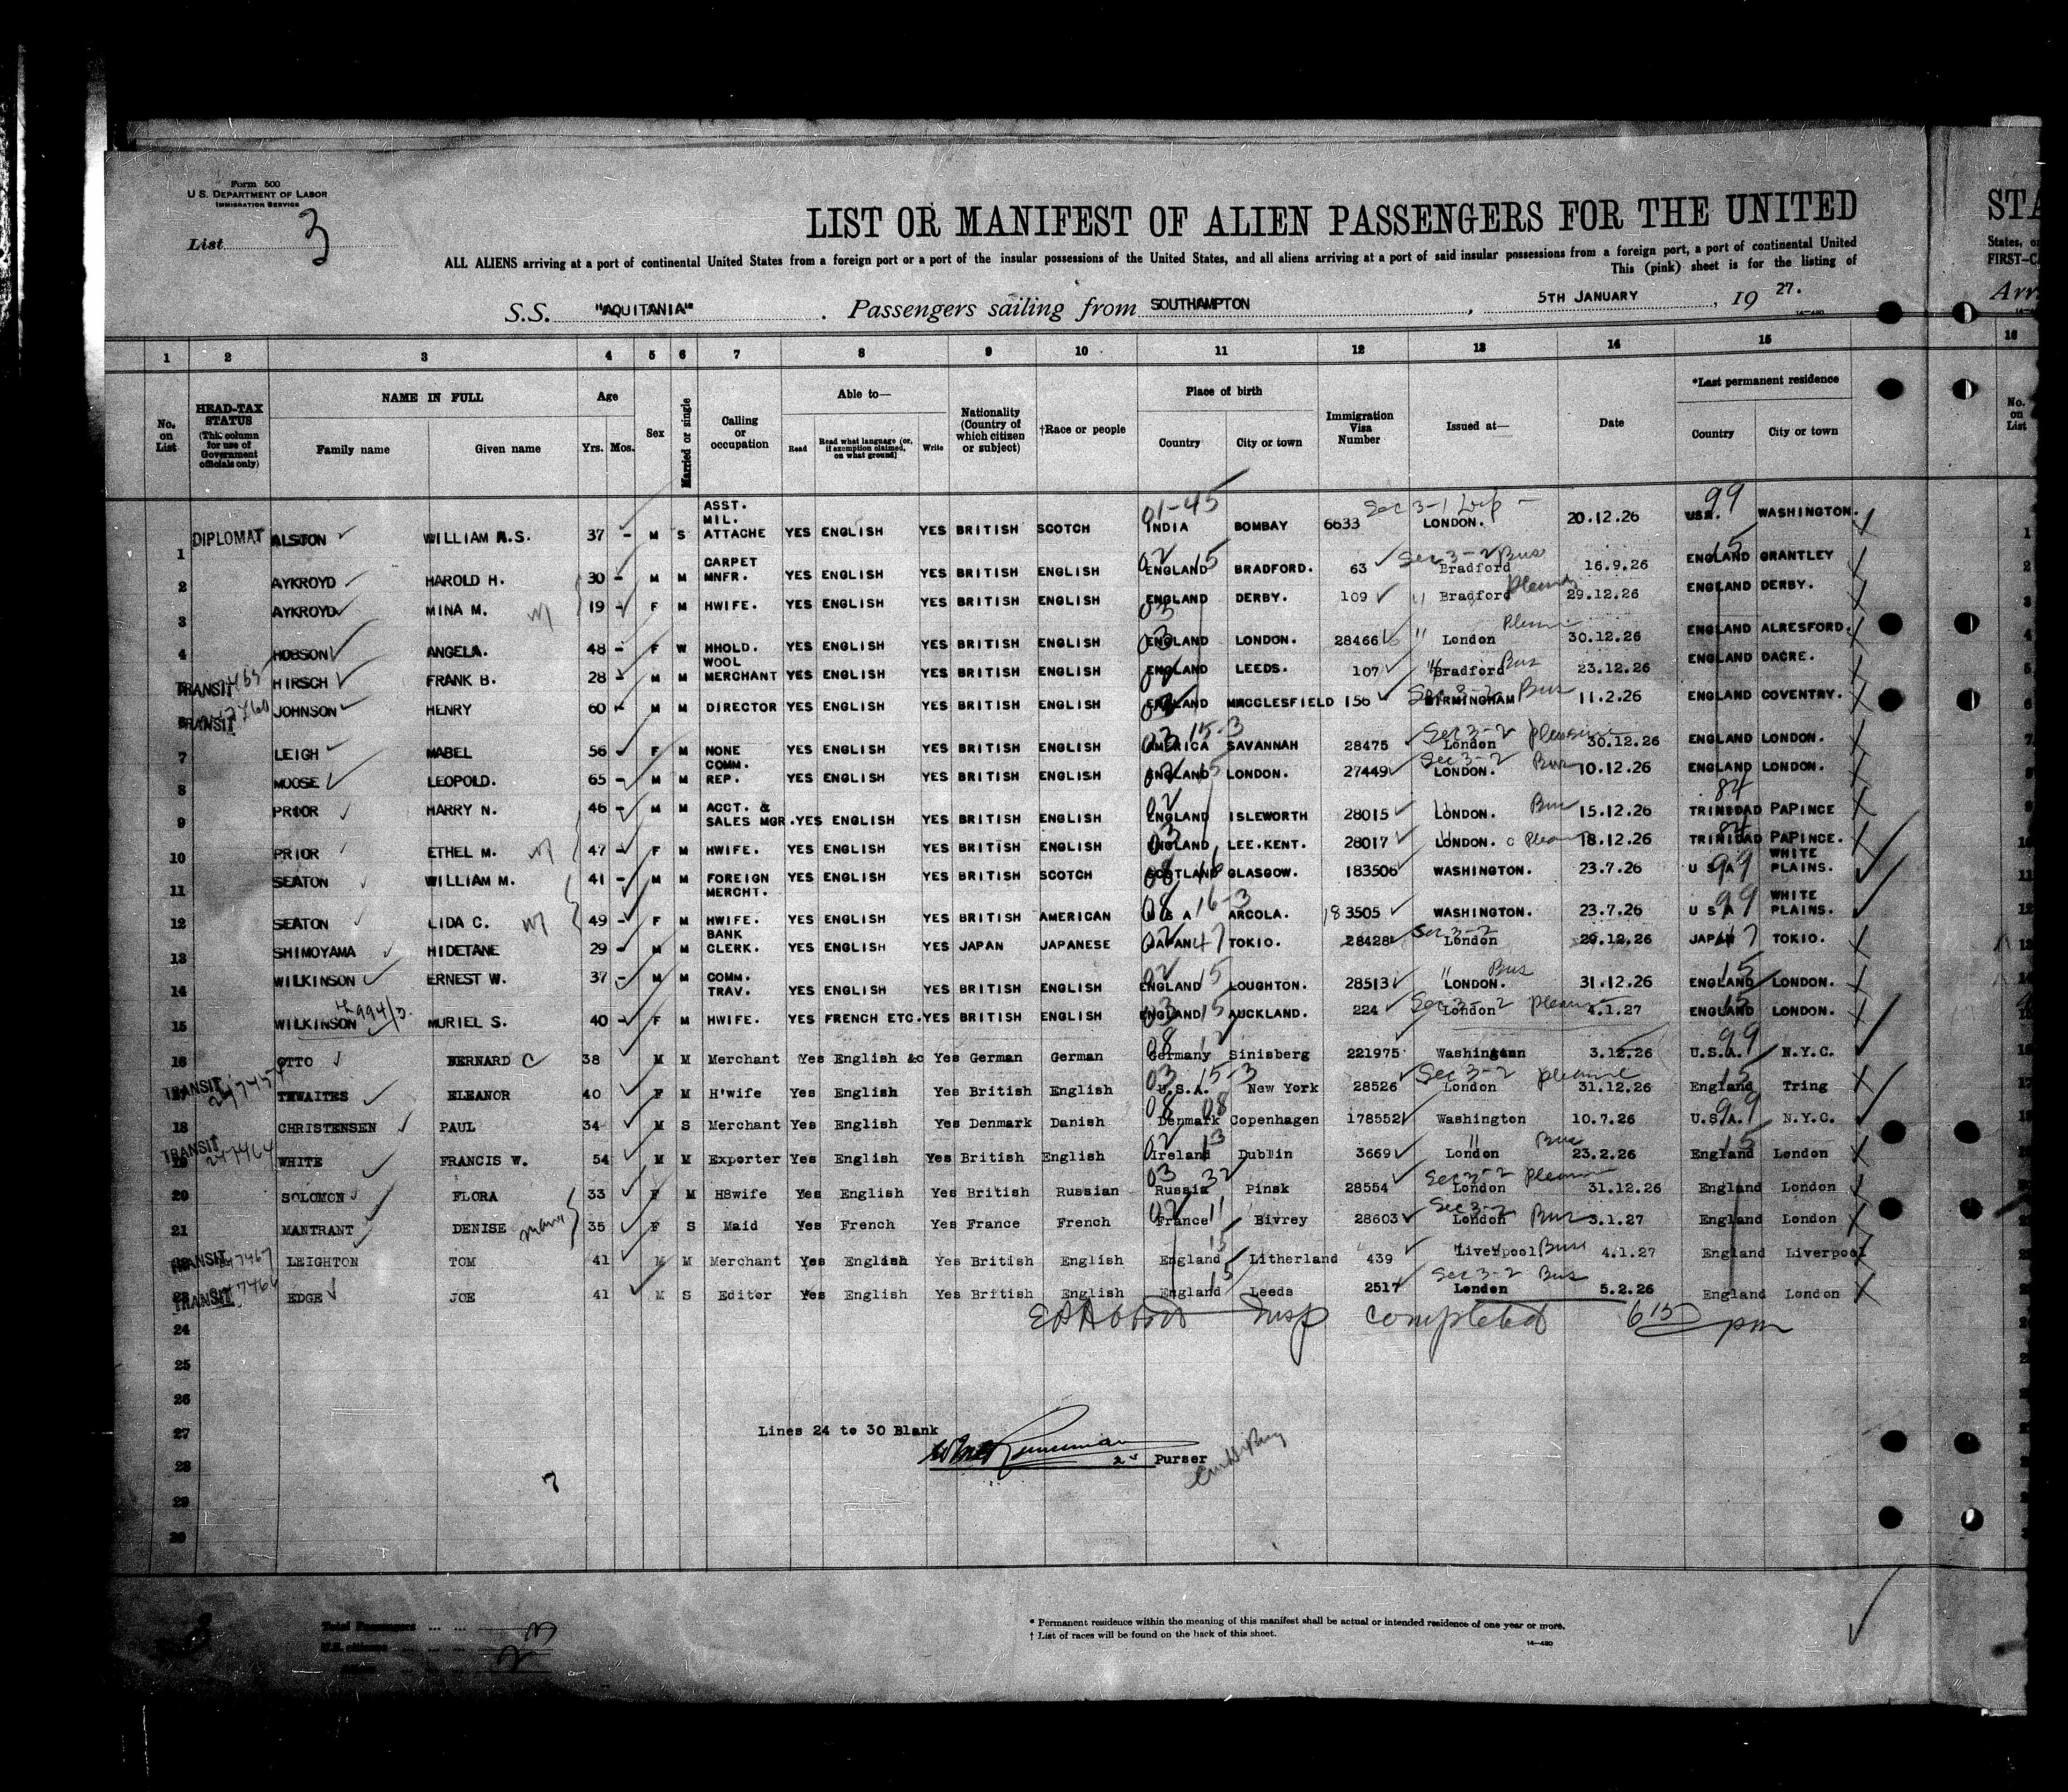 Form 500
U.S. DEPARTMENT OF LABOR
IMMIGRATION SERVICE
List 3
LIST OR MANIFEST OF ALIEN PASSENGERS FOR THE UNITED
STA
ALL ALIENS arriving at a port of continental United States from a foreign port or a port of the insular possessions of the United States, and all aliens arriving at a port of said insular possessions from a foreign port, a port of continental United
States, o
This (pink) sheet is for the listing of
FIRST-C
S.S. "AQUITANIA" . Passengers sailing from SOUTHAMPTON , 5TH JANUARY , 19 27.
Arri
1 2 3 4 5 6 7 8 9 10 11 12 13 14 15 16
No. on List
HEAD-TAX STATUS (This column for use of Government officials only)
NAME IN FULL Family name Given name
Age Yrs. Mos.
Sex
Married or single
Calling or occupation
Able to— Read Read what language (or, if exemption claimed, on what ground) Write
Nationality (Country of which citizen or subject)
†Race or people
Place of birth Country City or town
Immigration Visa Number
Issued at—
Date
*Last permanent residence Country City or town
No. on List
1 DIPLOMAT ALSTON WILLIAM R.S. 37 - M S ASST. MIL. ATTACHE YES ENGLISH YES BRITISH SCOTCH 01-45 INDIA BOMBAY 6633 Sec 3-1 LONDON. 20.12.26 99 USA. WASHINGTON.
2 AYKROYD HAROLD H. 30 - M M CARPET MNFR. YES ENGLISH YES BRITISH ENGLISH 02 15 ENGLAND BRADFORD. 63 Sec 3-2 Bus Bradford 16.9.26 15 ENGLAND GRANTLEY
3 AYKROYD MINA M. 19 - F M HWIFE. YES ENGLISH YES BRITISH ENGLISH ENGLAND DERBY. 03 109 " Bradford 29.12.26 ENGLAND DERBY.
4 HOBSON ANGELA. 48 - F W HHOLD. YES ENGLISH YES BRITISH ENGLISH 03 ENGLAND LONDON. 28466 " London 30.12.26 ENGLAND ALRESFORD.
5 TRANSIT HIRSCH FRANK B. 28 M M WOOL MERCHANT YES ENGLISH YES BRITISH ENGLISH ENGLAND LEEDS. 107 " Bradford Bus 23.12.26 ENGLAND DACRE.
6 TRANSIT JOHNSON HENRY 60 - M M DIRECTOR YES ENGLISH YES BRITISH ENGLISH ENGLAND MACCLESFIELD 156 Sec 3-2 Bus BIRMINGHAM 11.2.26 ENGLAND COVENTRY.
7 LEIGH MABEL 56 - F M NONE YES ENGLISH YES BRITISH ENGLISH 03 15-3 AMERICA SAVANNAH 28475 Sec 3-2 pleasure London 30.12.26 ENGLAND LONDON.
8 MOOSE LEOPOLD. 65 - M M COMM. REP. YES ENGLISH YES BRITISH ENGLISH ENGLAND LONDON. 27449 Sec 3-2 Bus LONDON. 10.12.26 ENGLAND LONDON.
9 PRIOR HARRY N. 46 - M M ACCT. & SALES MGR. YES ENGLISH YES BRITISH ENGLISH 02 ENGLAND ISLEWORTH 28015 LONDON. Bus 15.12.26 84 TRINIDAD PAPINCE
10 PRIOR ETHEL M. 47 - F M HWIFE. YES ENGLISH YES BRITISH ENGLISH 03 ENGLAND LEE.KENT. 28017 LONDON. 18.12.26 84 TRINIDAD PAPINCE.
11 SEATON WILLIAM M. 41 - M M FOREIGN MERCHT. YES ENGLISH YES BRITISH SCOTCH 08 SCOTLAND GLASGOW. 183506 WASHINGTON. 23.7.26 99 U S A WHITE PLAINS.
12 SEATON LIDA C. 49 - F M HWIFE. YES ENGLISH YES BRITISH AMERICAN 08 16-3 U S A ARCOLA. 183505 WASHINGTON. 23.7.26 99 U S A WHITE PLAINS.
13 SHIMOYAMA HIDETANE 29 - M M BANK CLERK. YES ENGLISH YES JAPAN JAPANESE 02 47 JAPAN TOKIO. 28428 Sec 3-2 London 29.12.26 47 JAPAN TOKIO.
14 WILKINSON ERNEST W. 37 - M M COMM. TRAV. YES ENGLISH YES BRITISH ENGLISH 02 15 ENGLAND LOUGHTON. 28513 " Bus LONDON. 31.12.26 15 ENGLAND LONDON.
15 WILKINSON MURIEL S. 40 - F M HWIFE. YES FRENCH ETC. YES BRITISH ENGLISH 03 15 ENGLAND AUCKLAND. 224 Sec 3-2 pleasure London 4.1.27 15 ENGLAND LONDON.
16 OTTO BERNARD C 38 M M Merchant Yes English &c Yes German German 08 12 Germany Sinisberg 221975 Washington 3.12.26 99 U.S.A. N.Y.C.
17 TRANSIT 247457 THWAITES ELEANOR 40 F M H'wife Yes English Yes British English 03 15-3 U.S.A. New York 28526 Sec 3-2 pleasure London 31.12.26 15 England Tring
18 CHRISTENSEN PAUL 34 M S Merchant Yes English Yes Denmark Danish 08 08 Denmark Copenhagen 178552 Washington 10.7.26 99 U.S.A. N.Y.C.
19 TRANSIT 247464 WHITE FRANCIS W. 54 M M Exporter Yes English Yes British English 02 13 Ireland Dublin 3669 " Bus London 23.2.26 15 England London
20 SOLOMON FLORA 33 F M H8wife Yes English Yes British Russian 03 32 Russia Pinsk 28554 Sec 3-2 Pleasure London 31.12.26 England London
21 MANTRANT DENISE 35 F S Maid Yes French Yes France French 02 11 France Bivrey 28603 Sec 3-2 Bus London 3.1.27 England London
22 TRANSIT 7467 LEIGHTON TOM 41 M M Merchant Yes English Yes British English 15 England Litherland 439 Liverpool Bus 4.1.27 England Liverpool
23 TRANSIT 7466 EDGE JOE 41 M S Editor Yes English Yes British English 15 England Leeds 2517 Sec 3-2 Bus London 5.2.26 England London
24 Insp completed 6 15 pm
25
26
27 Lines 24 to 30 Blank
28 Purser
29
30
Total Passengers
U.S. citizens
* Permanent residence within the meaning of this manifest shall be actual or intended residence of one year or more.
† List of races will be found on the back of this sheet.
14—480